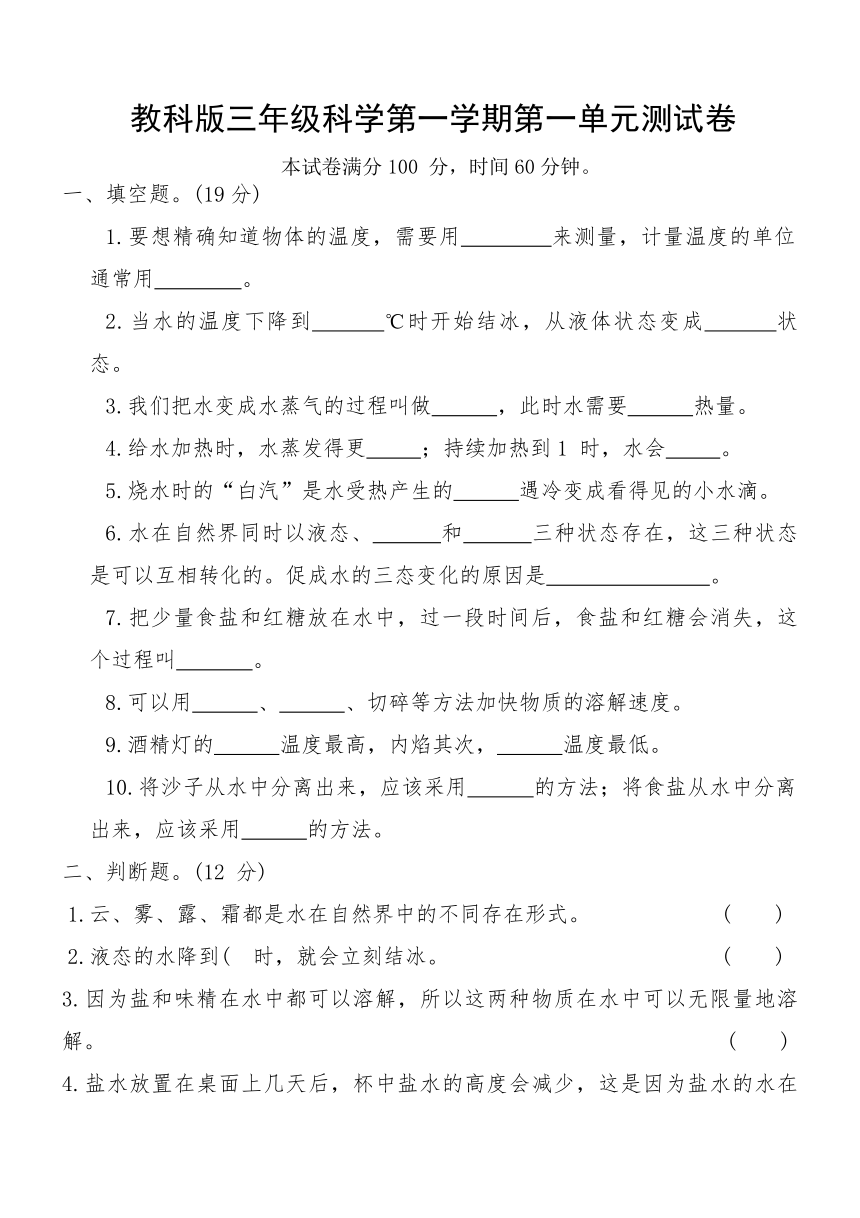 教科版三年级科学第一学期第一单元测试卷
本试卷满分100 分，时间60分钟。
一、填空题。(19分)
1.要想精确知道物体的温度，需要用________来测量，计量温度的单位
通常用________。
2.当水的温度下降到______℃时开始结冰，从液体状态变成______状
态。
3.我们把水变成水蒸气的过程叫做______，此时水需要______热量。
4.给水加热时，水蒸发得更_____；持续加热到1 时，水会_____。
5.烧水时的“白汽”是水受热产生的______遇冷变成看得见的小水滴。
6.水在自然界同时以液态、______和______三种状态存在，这三种状态
是可以互相转化的。促成水的三态变化的原因是_______________。
7.把少量食盐和红糖放在水中，过一段时间后，食盐和红糖会消失，这
个过程叫_______。
8.可以用______、______、切碎等方法加快物质的溶解速度。
9.酒精灯的______温度最高，内焰其次，______温度最低。
10.将沙子从水中分离出来，应该采用______的方法；将食盐从水中分离
出来，应该采用______的方法。
二、判断题。(12 分)
1.云、雾、露、霜都是水在自然界中的不同存在形式。 ( )
2.液态的水降到( 时，就会立刻结冰。 ( )
3.因为盐和味精在水中都可以溶解，所以这两种物质在水中可以无限量地溶
解。 ( )
4.盐水放置在桌面上几天后，杯中盐水的高度会减少，这是因为盐水的水在